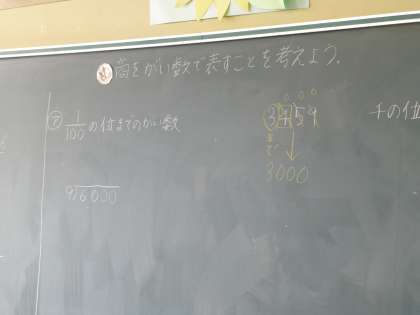 商をがい数で表すことを考えよう。
㋐ 1/100 の位までのがい数
9)6.000
000
3459
まで
3000
千の位